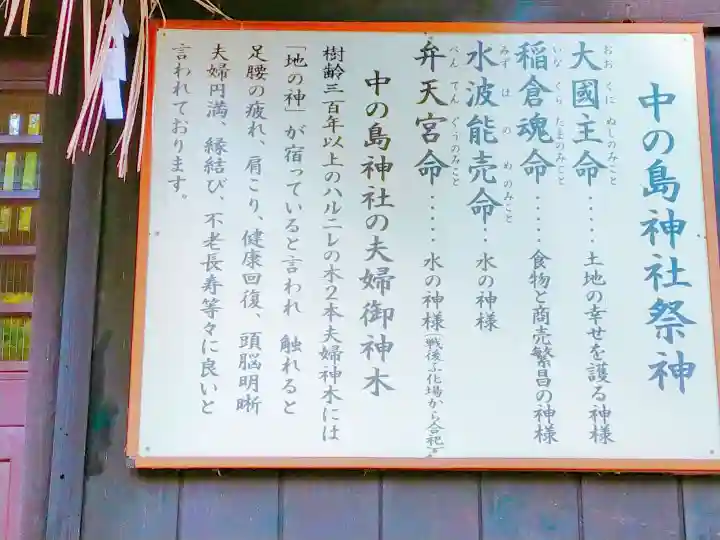 中の島神社祭神
大國主命‥‥‥土地の幸せを護る神様
おおくにぬしのみこと
稲倉魂命‥‥‥食物と商売繁昌の神様
いなくらたまのみこと
水波能売命‥水の神様
みずはのめのみこと
弁天宮命‥‥‥水の神様(戦後ふ化場から合祀)
べんてんぐうのみこと
中の島神社の夫婦御神木
樹齢三百年以上のハルニレの木2本夫婦神木には
「地の神」が宿っていると言われ 触れると
足腰の疲れ、肩こり、健康回復、頭脳明晰
夫婦円満、縁結び、不老長寿等々に良いと
言われております。